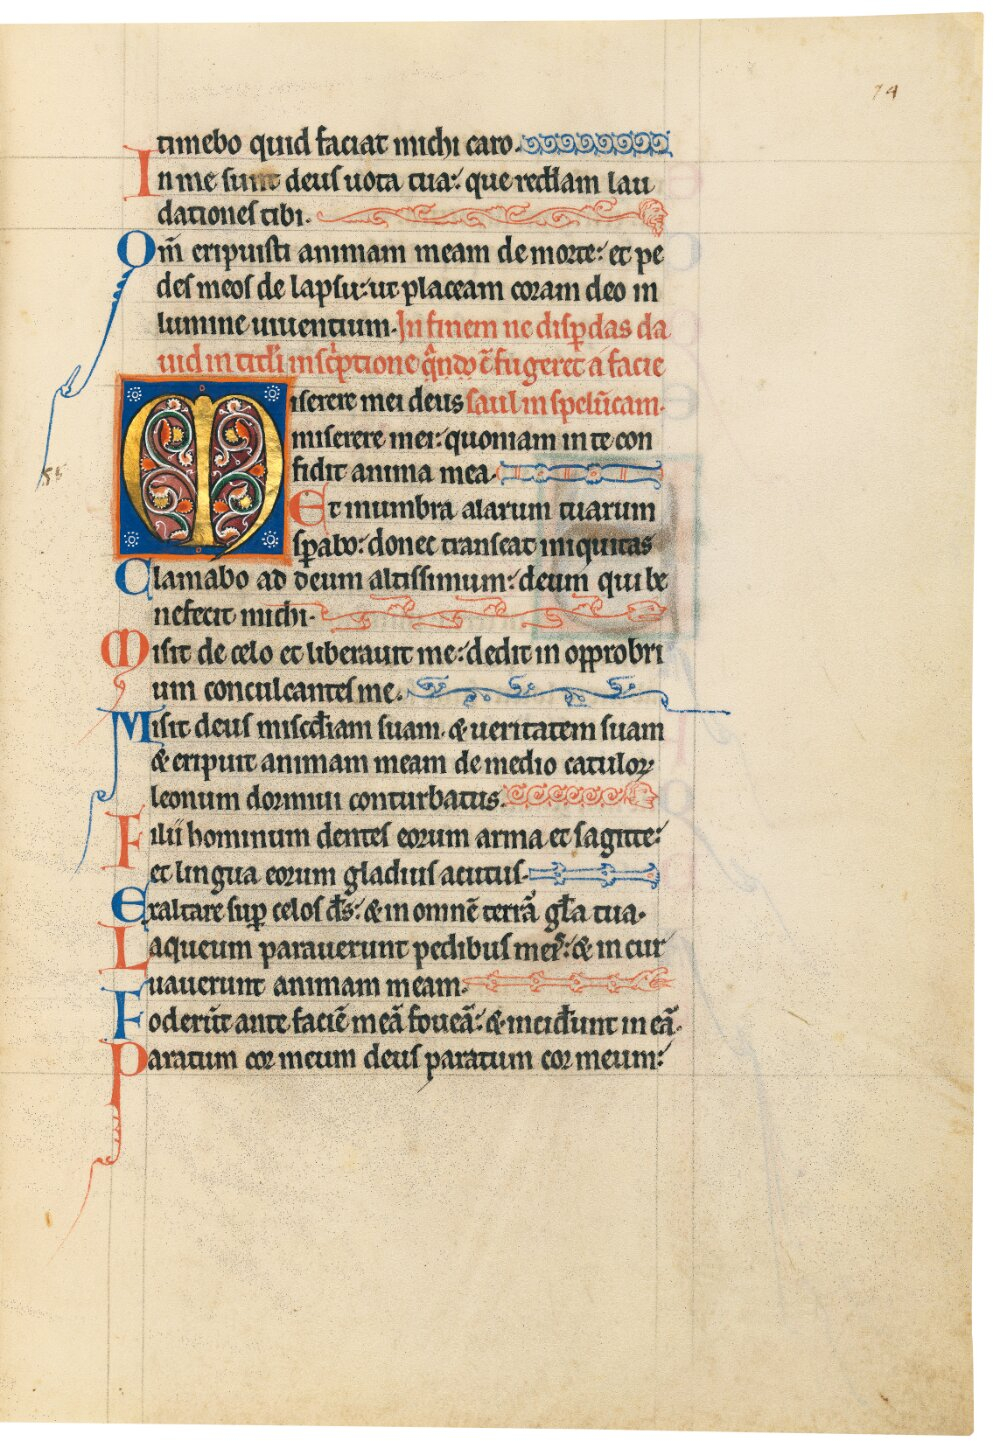 74
timebo quid faciat michi caro.
In me sunt deus uota tua: que reddam lau
dationes tibi.
Qm̅ eripuisti animam meam de morte: et pe
des meos de lapsu: ut placeam coram deo in
lumine uiuentium. In finem ne disp̱das da
uid in tituli inscͥptione qn̅do cu̅ fugeret a facie
Miserere mei deus saul in spelu̅cam.
miserere mei: quoniam in te con
fidit anima mea.
Et in umbra alarum tuarum
sp̱abo: donec transeat iniquitas
Clamabo ad deum altissimum: deum qui be
nefecit michi.
Misit de celo et liberauit me: dedit in opprobri
um conculcantes me.
Misit deus misc̅diam suam. & ueritatem suam
& eripuit animam meam de medio catuloꝝ
leonum dormiui conturbatus.
Filii hominum dentes eorum arma et sagitte:
et lingua eorum gladius acutus.
Exaltare sup̱ celos ds̅: & in omne̅ terra̅ gl̅a tua.
Laqueum parauerunt pedibus meis: & incur
uauerunt animam meam.
Foderu̅t ante facie̅ mea̅ fouea̅: & incid̅unt in ea̅.
Paratum cor meum deus paratum cor meum: